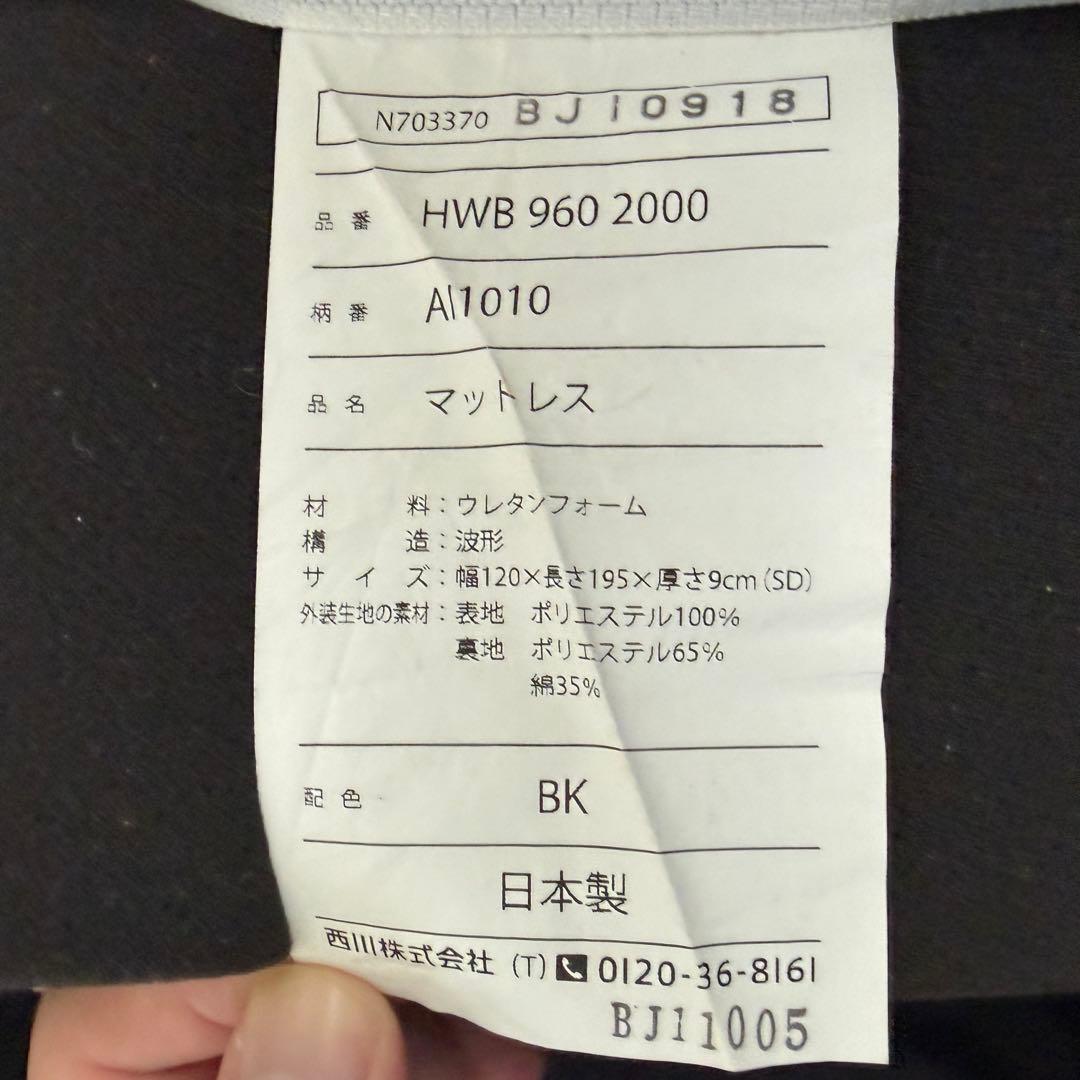 N703370 BJ10918
品番 HWB 960 2000
柄番 AI1010
品名 マットレス
材料：ウレタンフォーム
構造：波形
サイズ：幅120×長さ195×厚さ9cm（SD）
外装生地の素材：表地 ポリエステル100%
裏地 ポリエステル65%
綿35%
配色 BK
日本製
西川株式会社 (T) 0120-36-8161
BJ11005